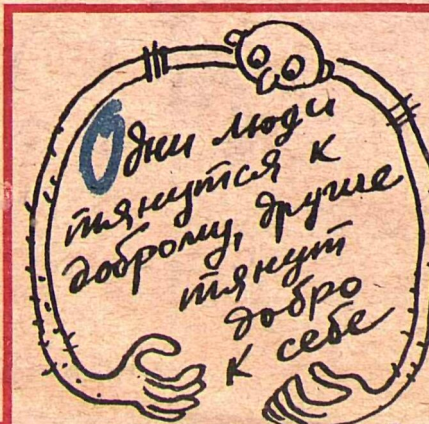 Одни люди
тянутся к
доброму, другие
тянут
добро
к себе